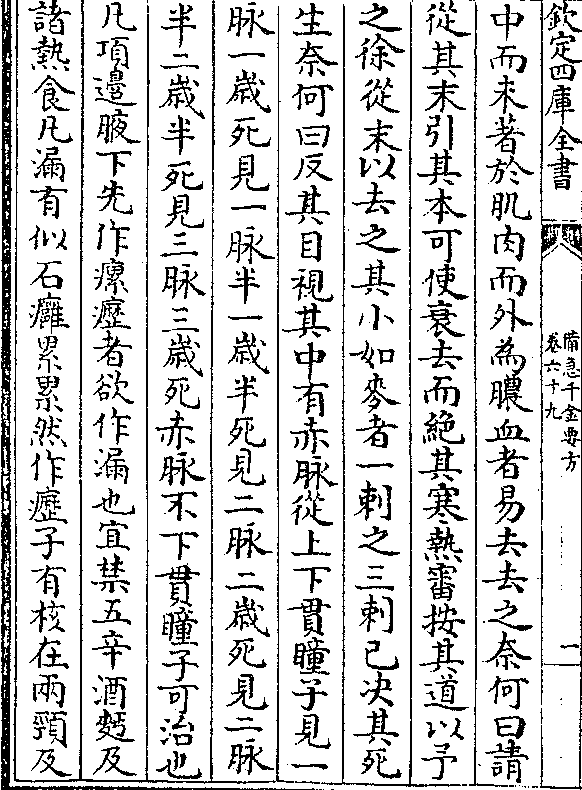 欽定四庫全書
備急千金要方
卷六十九
一
中而未著於肌肉而外為膿血者易去去之奈何曰請
從其末引其本可使衰去而絶其寒熱審按其道以予
之徐從末以去之其小如麥者一刺之三刺已決其死
生奈何曰反其目視其中有赤脉從上下貫瞳子見一
脉一歳死見一脉半一歳半死見二脉二歳死見二脉
半二歳半死見三脉三歳死赤脉不下貫瞳子可治也
凡項邊腋下先作瘰癧者欲作漏也宜禁五辛酒麪及
諸熱食凡漏有似石癰累累然作癧子有核在兩頸及